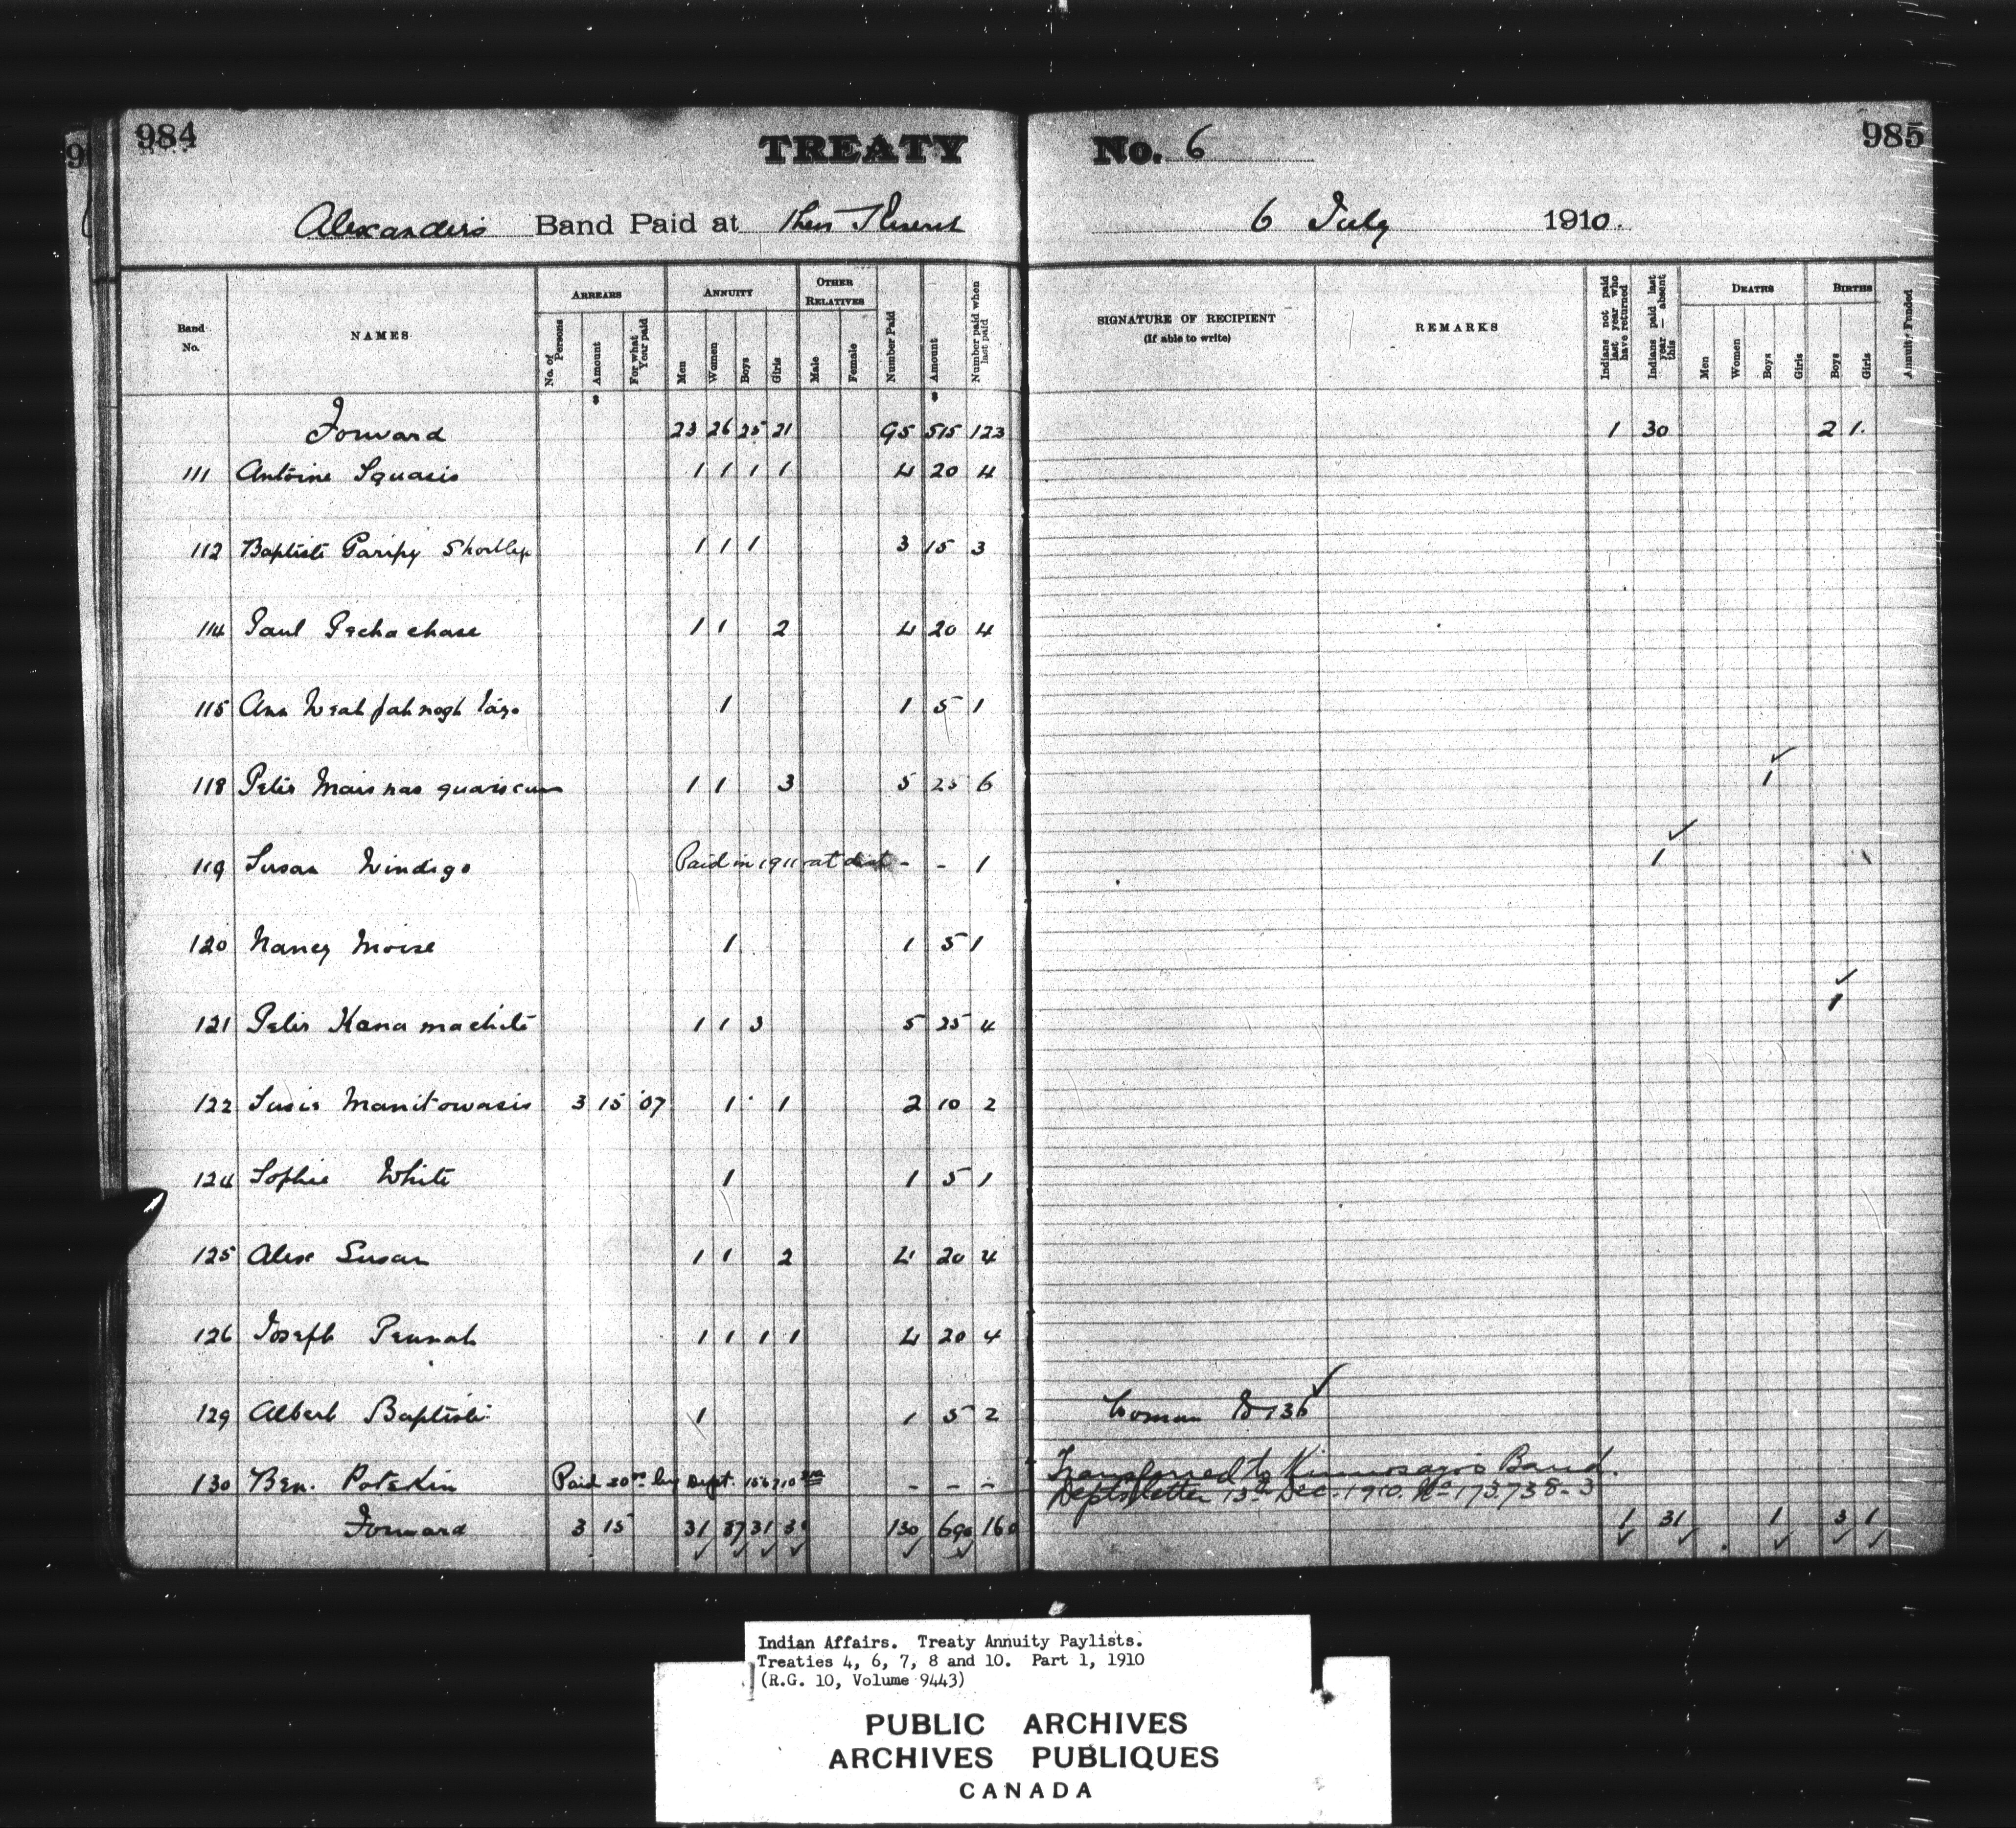 984
TREATY No. 6
985
Alexanders Band Paid at their Reserve 6 July 1910.
Band No.
NAMES
ARREARS
No. of Persons
Amount
For what Year paid
ANNUITY
Men
Women
Boys
Girls
OTHER RELATIVES
Male
Female
Number Paid
Amount
Number paid when last paid
SIGNATURE OF RECIPIENT
(If able to write)
REMARKS
Indians not paid last year who have returned
Indians paid last year — absent this
DEATHS
Men
Women
Boys
Girls
BIRTHS
Boys
Girls
Annuity Funded
Forward 23 26 25 21 95 515 123 1 30 2 1
111 Antoine Squasis 1 1 1 1 4 20 4
112 Baptiste Paripy 1 1 1 3 15 3
114 Paul 1 1 2 4 20 4
115 Ann 1 1 5 1
118 Peter 1 1 3 5 25 6 1
119 Susan Windigo Paid in 1911 at dist - - 1 1
120 Nancy Moise 1 1 5 1
121 Peter Kanamachite 1 1 3 5 25 4 1
122 Susie Manitowasis 3 15 '07 1 1 2 10 2
124 Sophie White 1 1 5 1
125 Alex Susan 1 1 2 4 20 4
126 Joseph Pennah 1 1 1 1 4 20 4
129 Albert Baptiste 1 1 5 2 Woman to 136
130 Ben. Potskin Paid by Dept. - - - Transferred to Band.
Depts letter 13th Dec. 1910. No 173.738-3
Forward 3 15 31 37 31 150 690 160 1 31 1 3 1
Indian Affairs. Treaty Annuity Paylists.
Treaties 4, 6, 7, 8 and 10. Part 1, 1910
(R.G. 10, Volume 9443)
PUBLIC ARCHIVES
ARCHIVES PUBLIQUES
CANADA